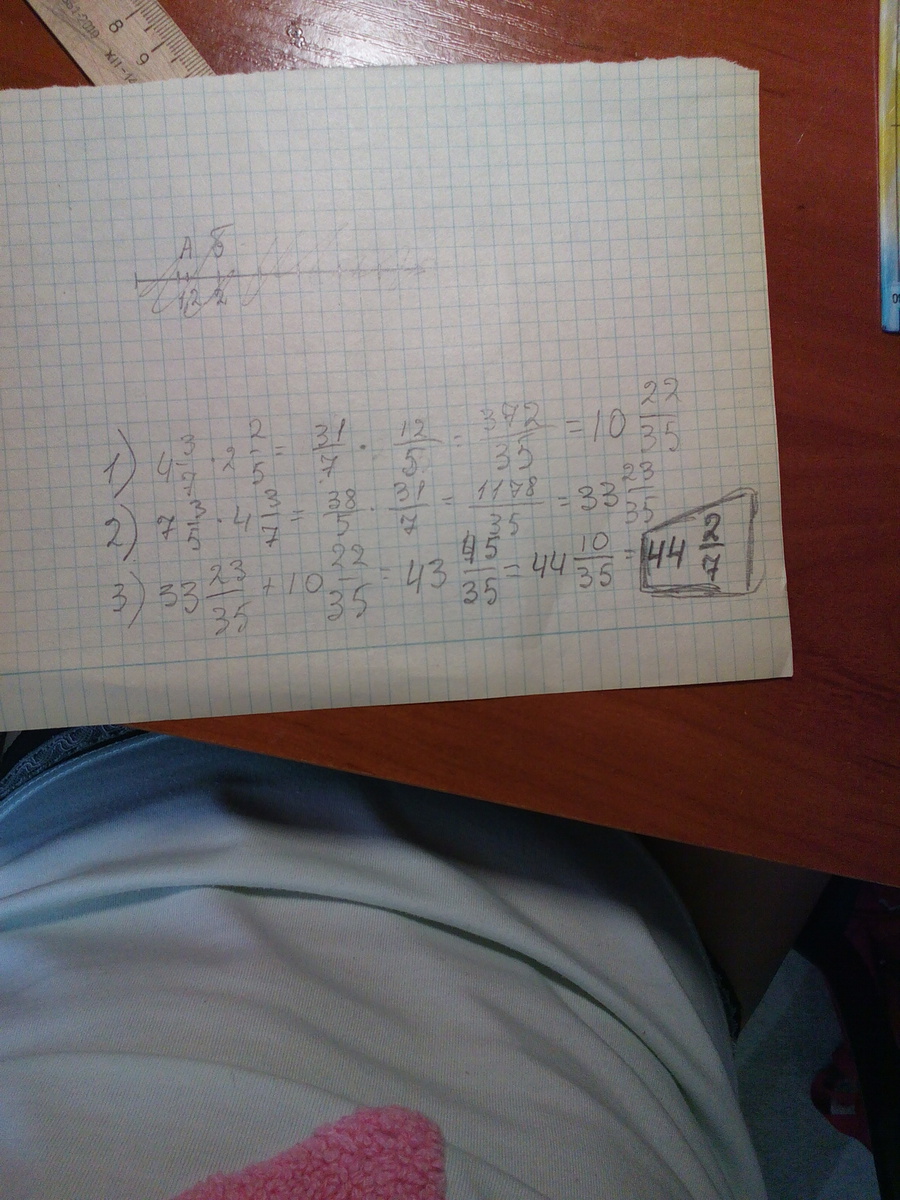 А Б
1 2 2
1) 4 3/7 · 2 2/5 = 31/7 · 12/5 = 372/35 = 10 22/35
2) 7 3/5 · 4 3/7 = 38/5 · 31/7 = 1178/35 = 33 23/35
3) 33 23/35 + 10 22/35 = 43 45/35 = 44 10/35 = 44 2/7